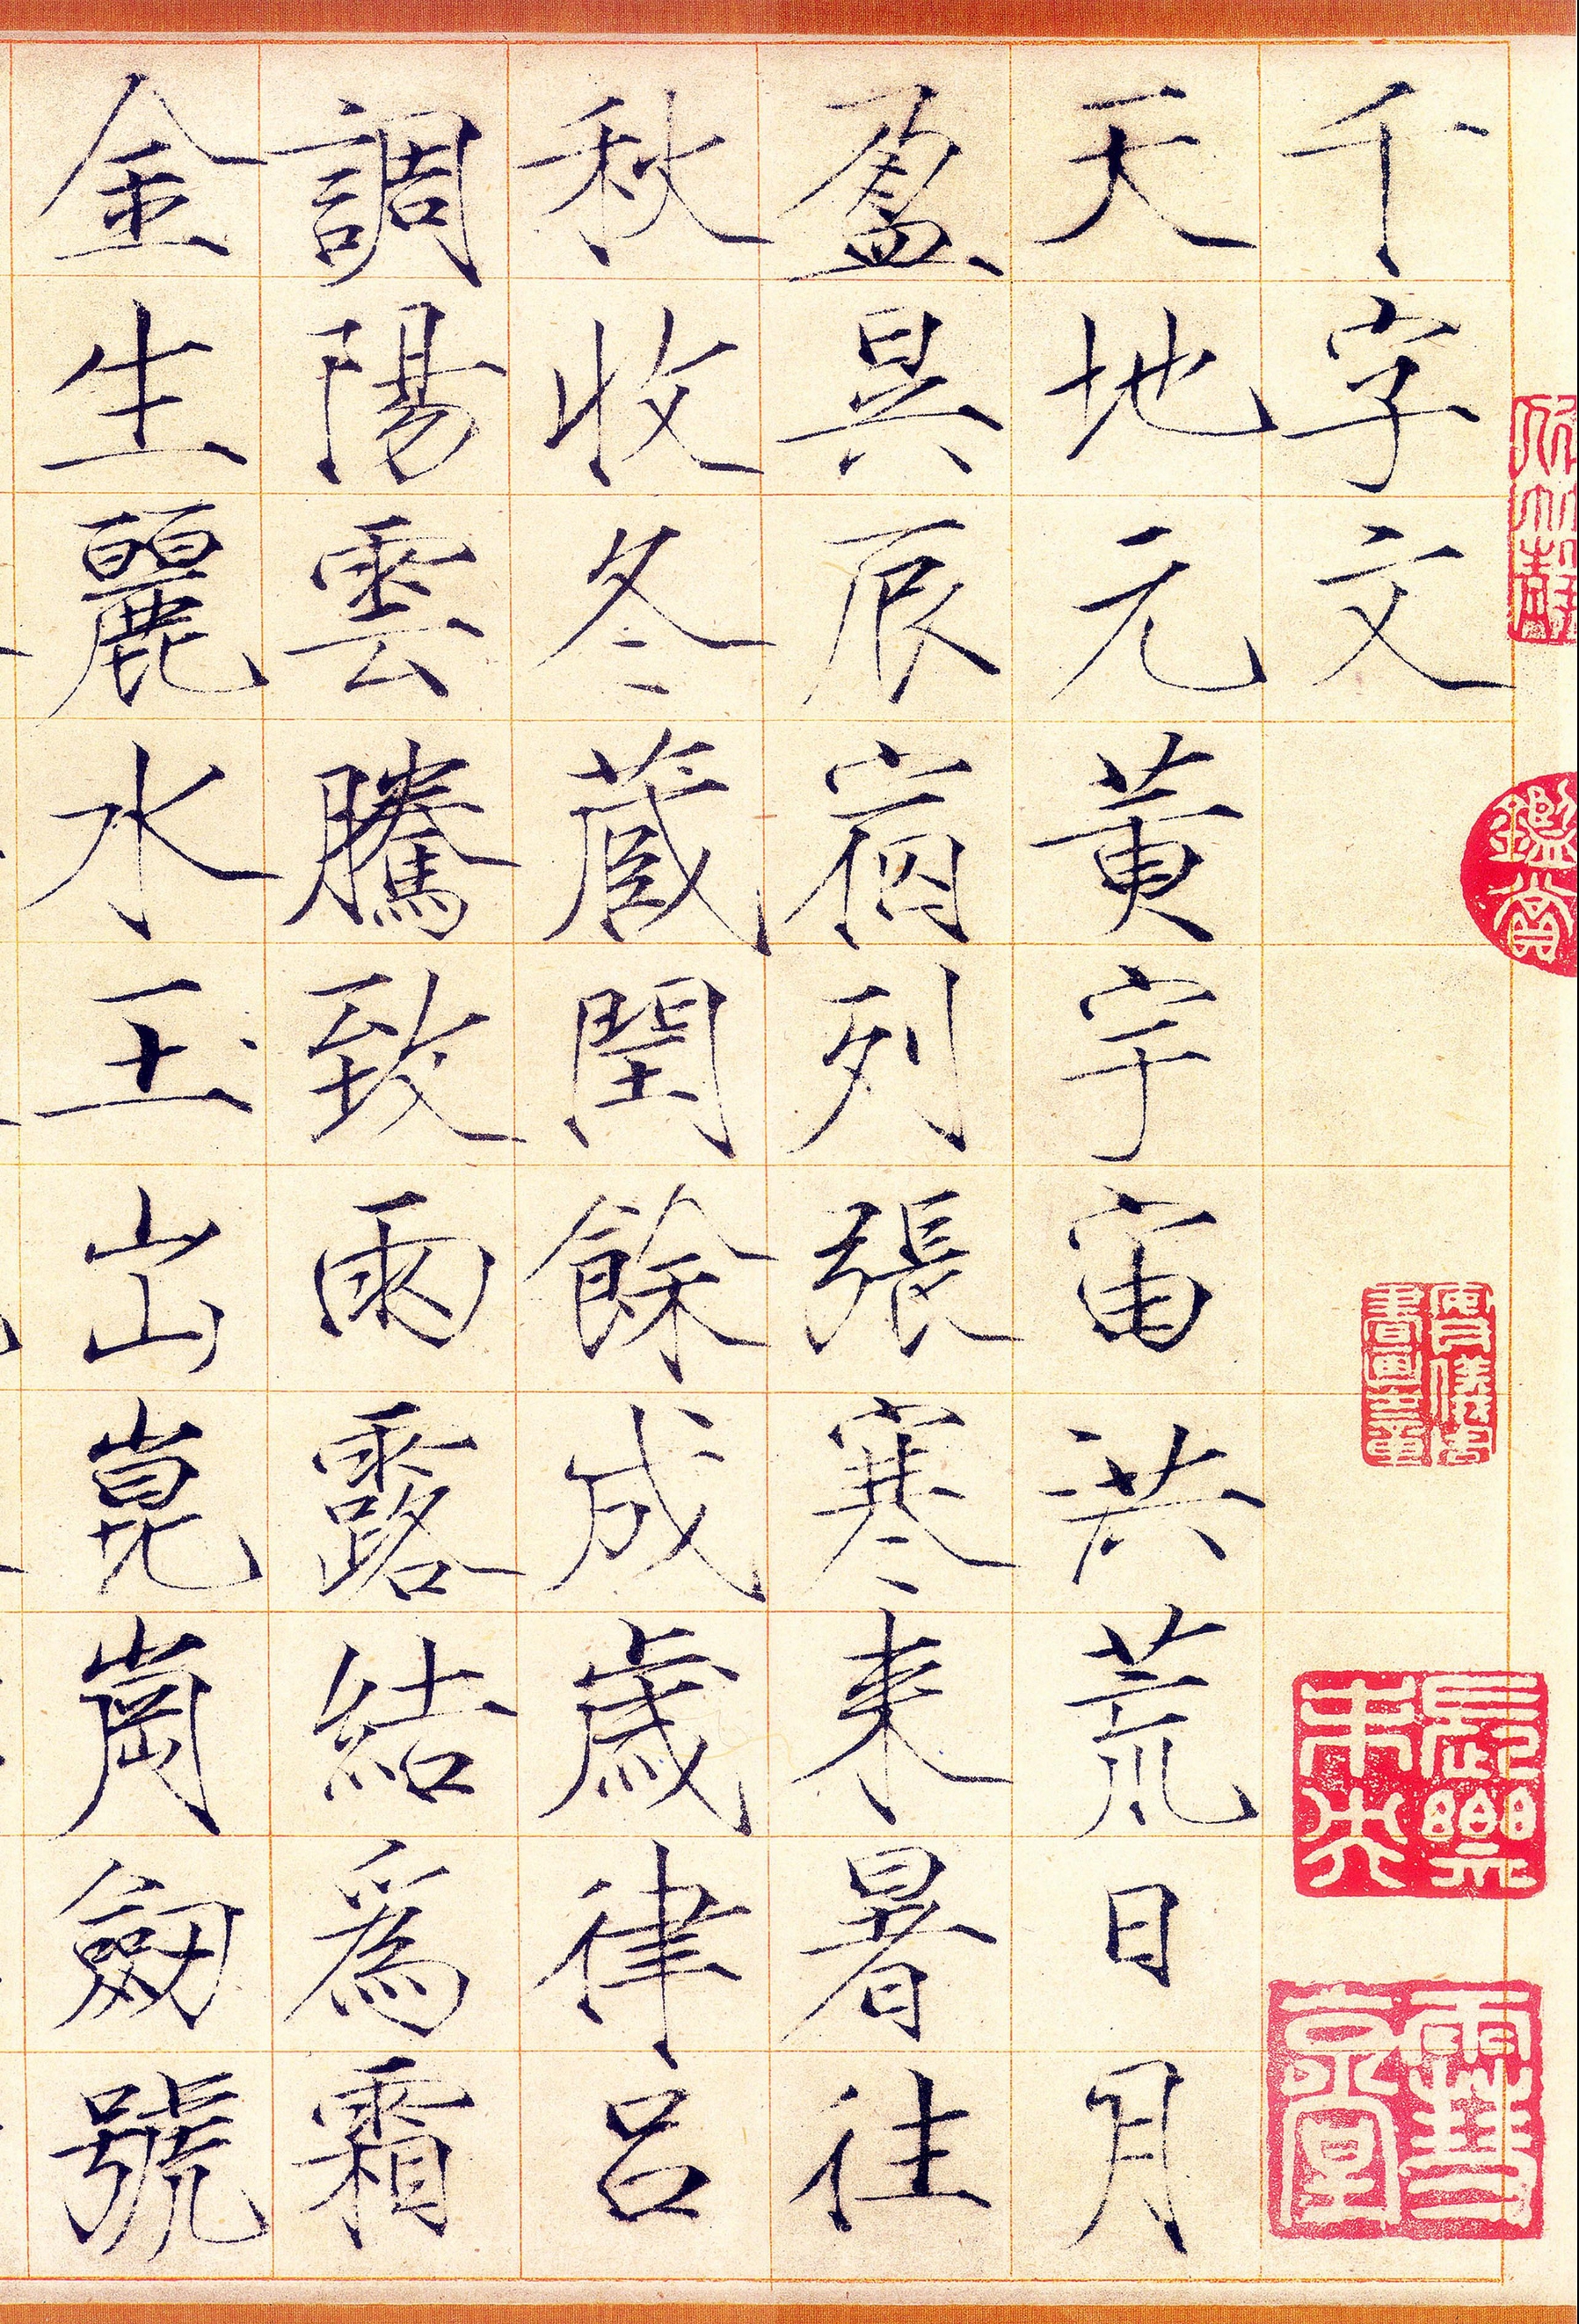 千字文
天地元黃宇宙洪荒日月
盈昃辰宿列張寒來暑往
秋收冬藏閏餘成歲律呂
調陽雲騰致雨露結爲霜
金生麗水玉出崑崗劒號
鑑賞
長樂未央